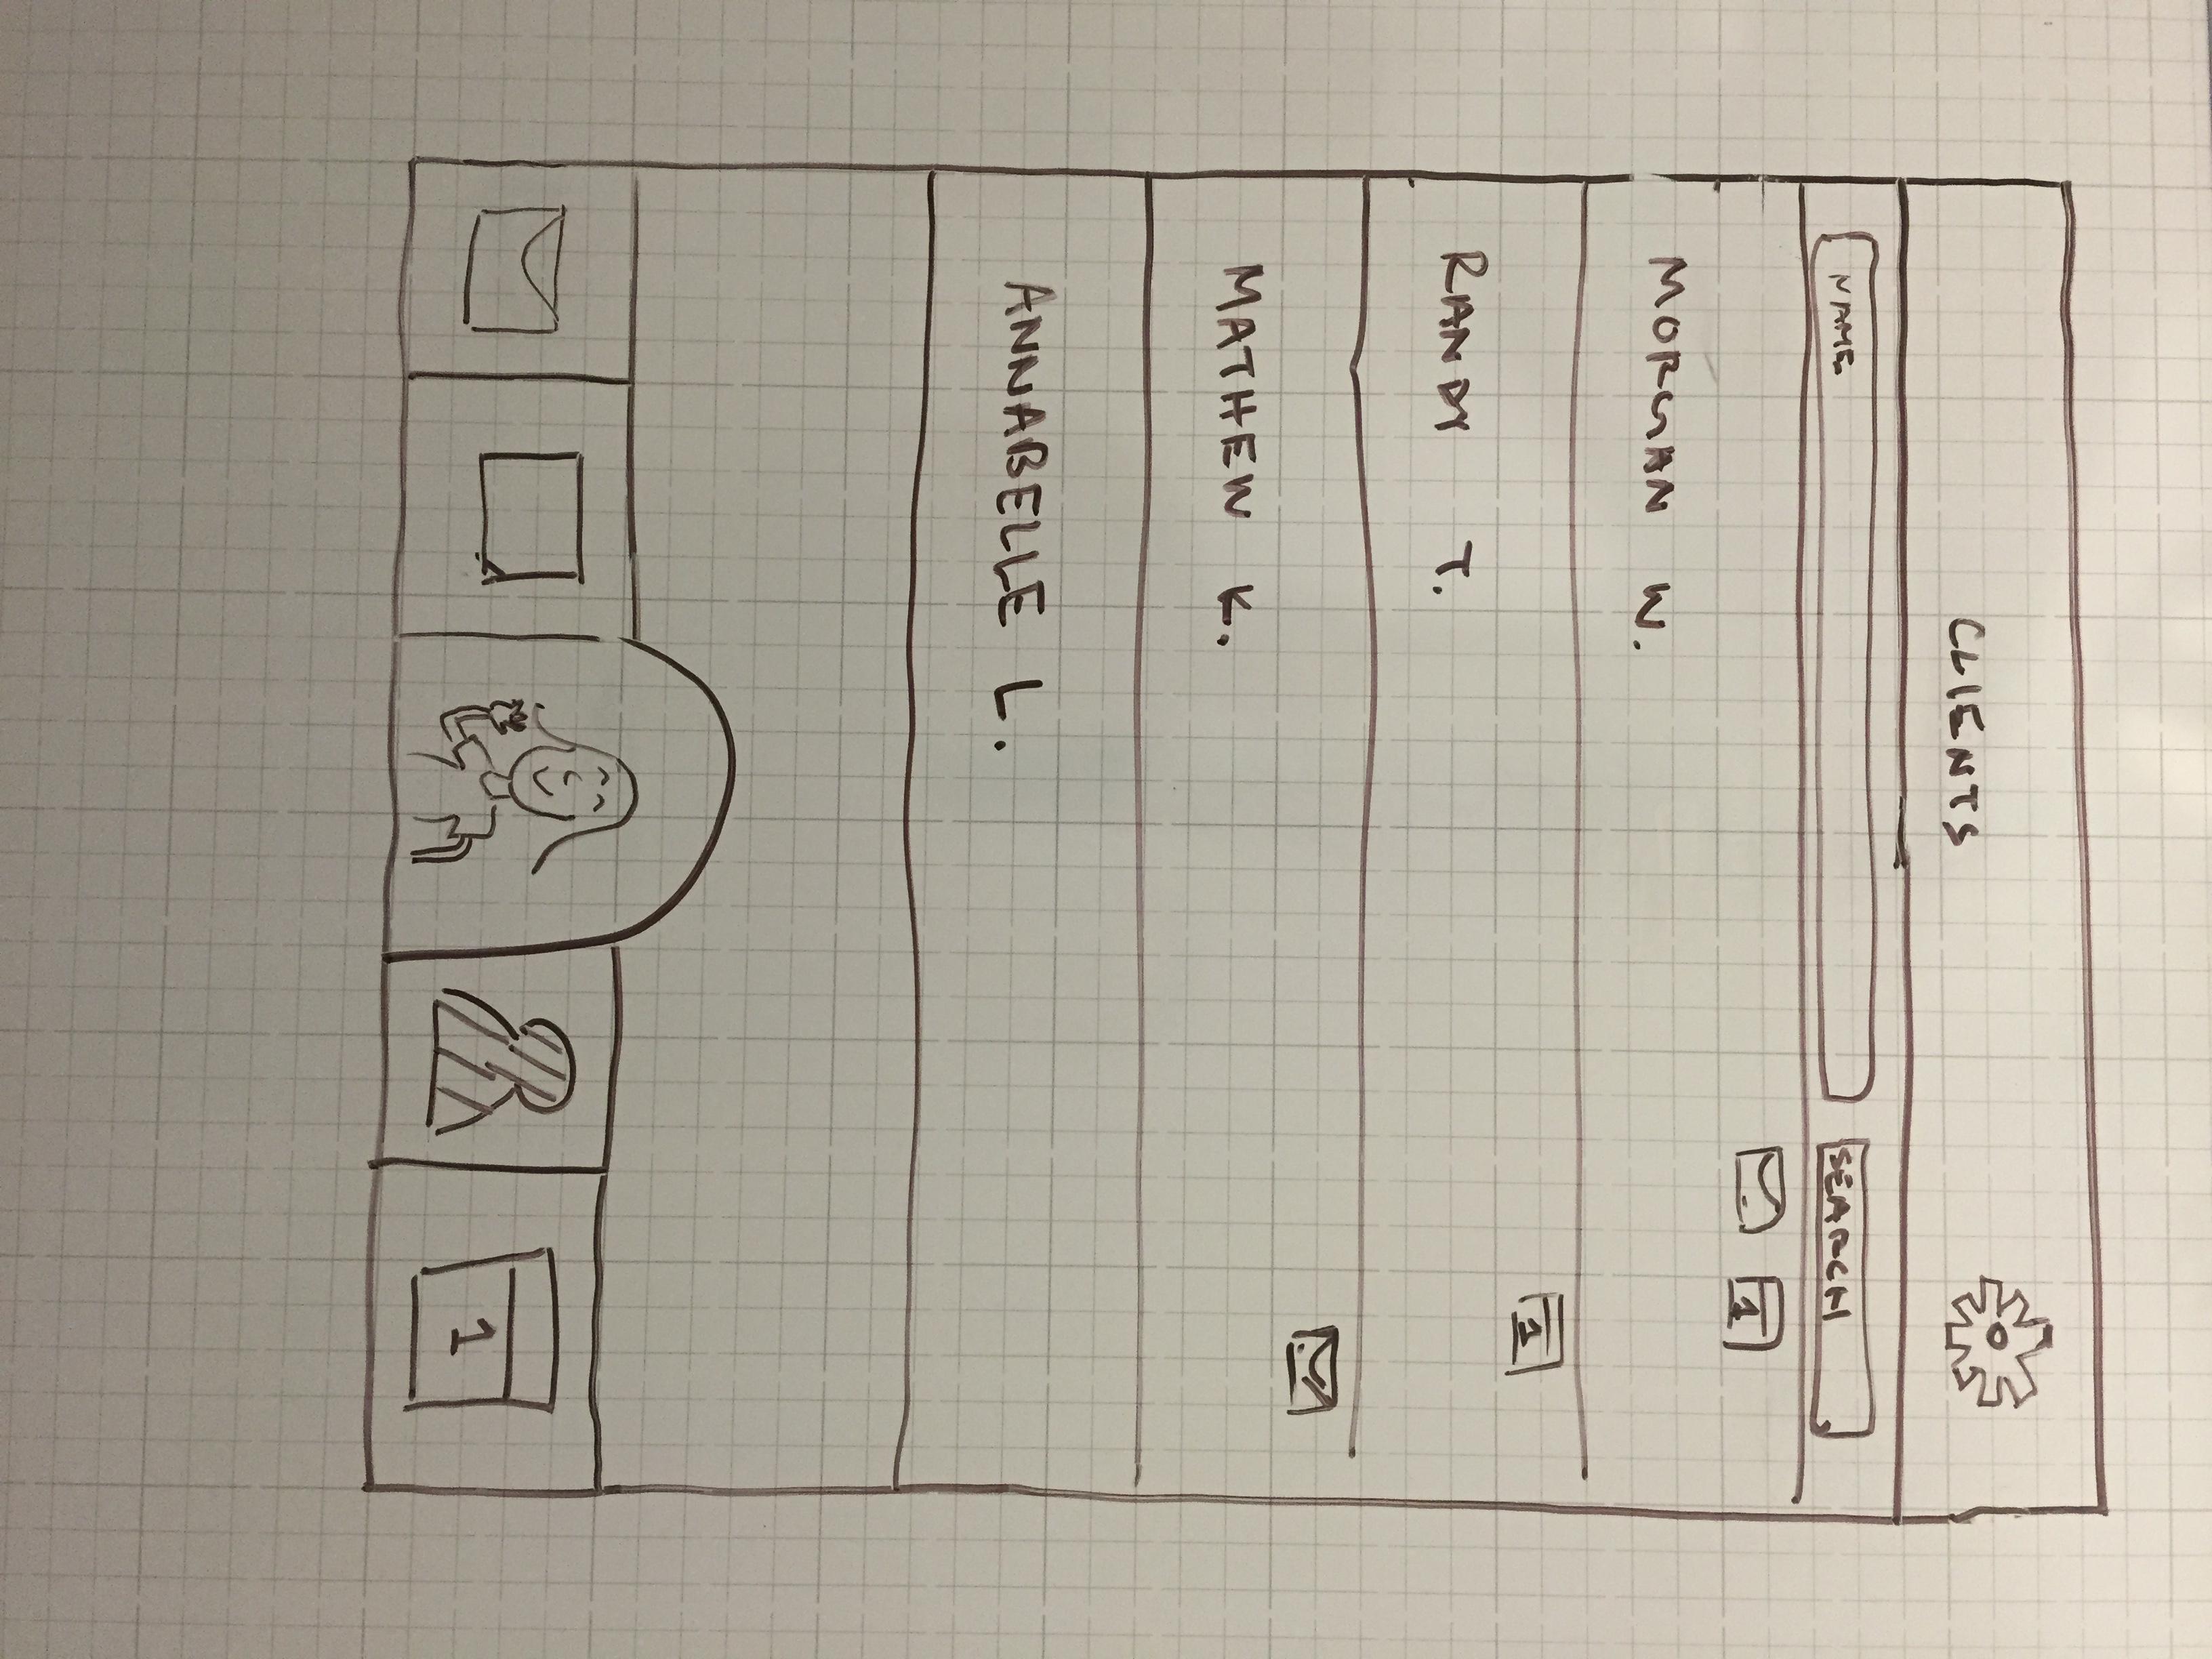 CLIENTS
NAME SEARCH
MORGAN W. 1
RANDY T. 1
MATHEW K.
ANNABELLE L.
1